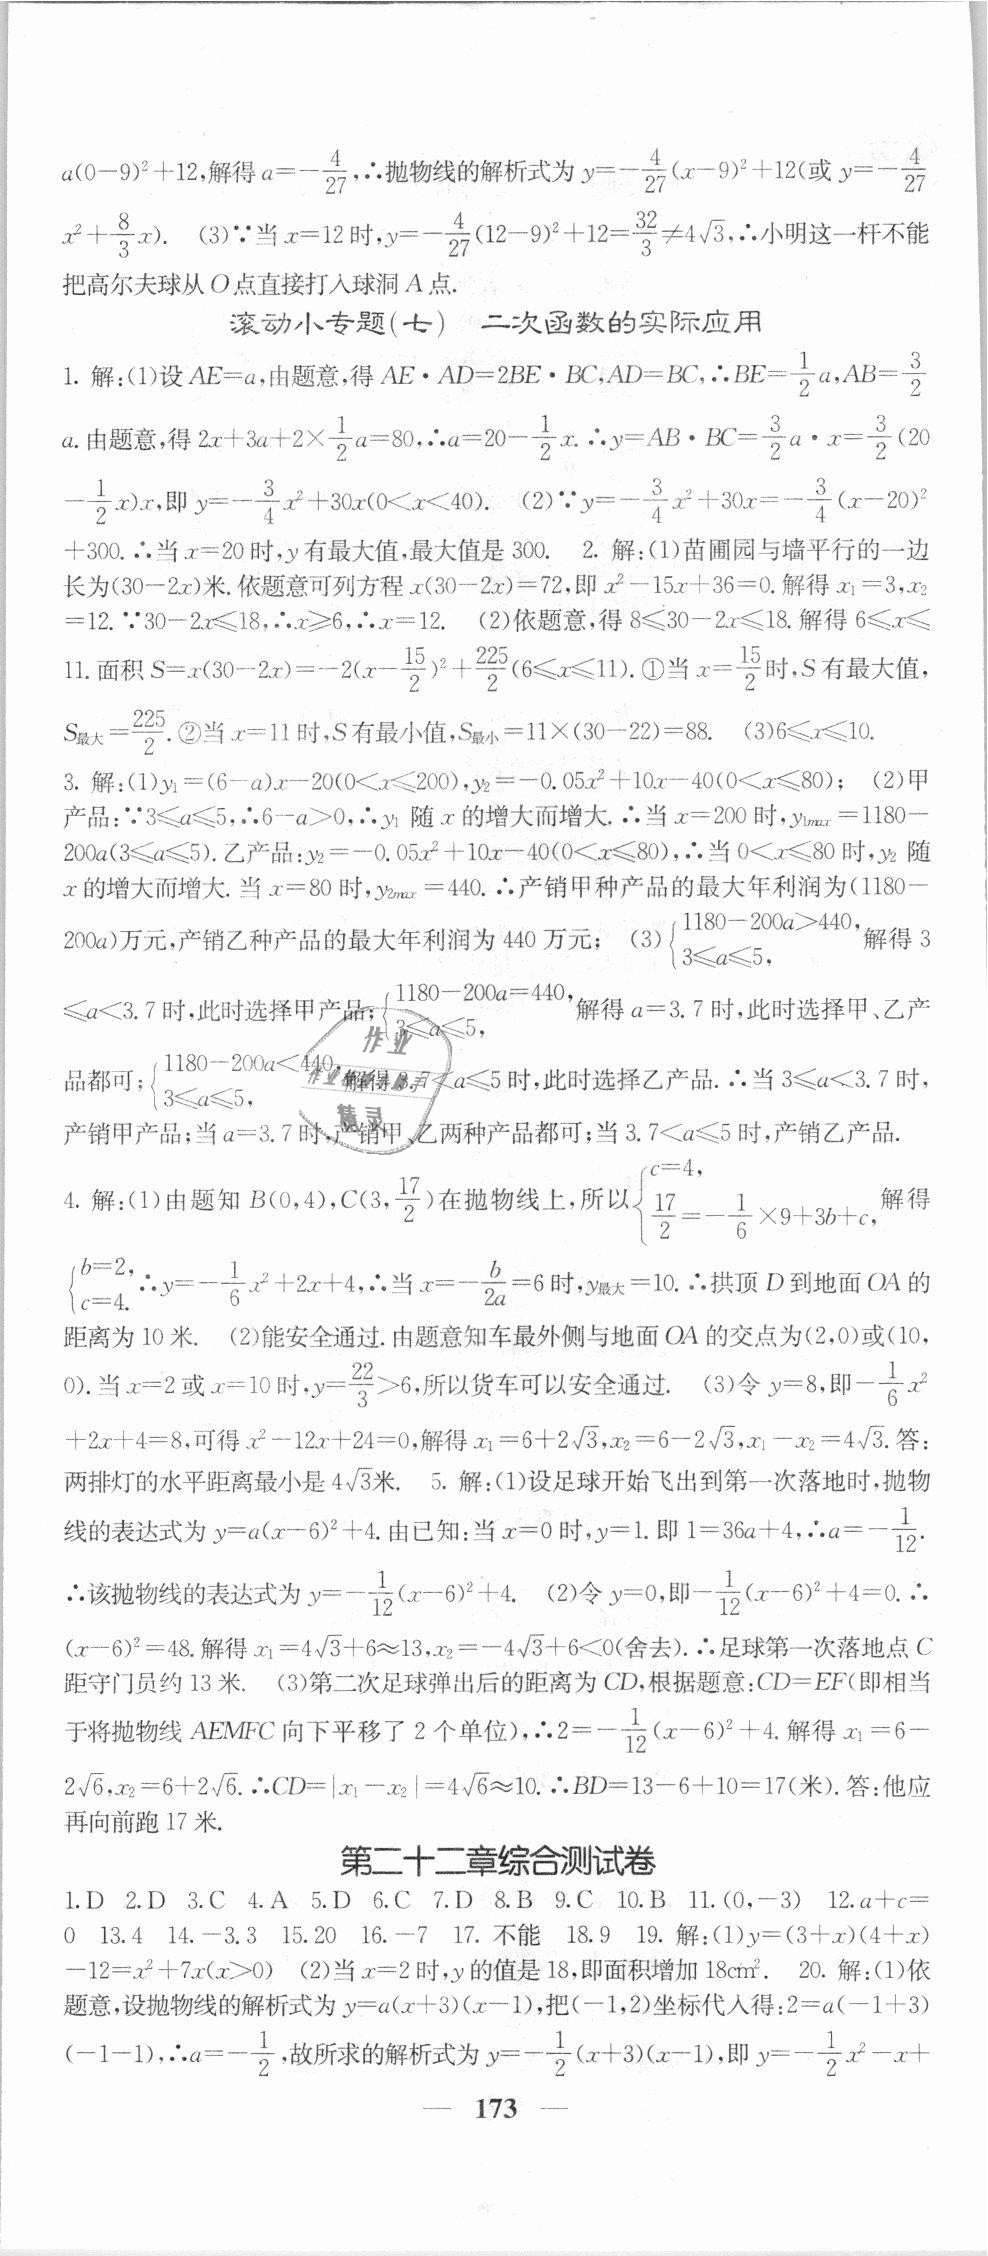 a(0-9)²+12,解得 a=-4/27,∴抛物线的解析式为 y=-4/27(x-9)²+12(或 y=-4/27
x²+8/3x). (3)∵当 x=12 时,y=-4/27(12-9)²+12=32/3≠4√3,∴小明这一杆不能
把高尔夫球从 O 点直接打入球洞 A 点.
滚动小专题(七) 二次函数的实际应用
1. 解:(1)设 AE=a,由题意,得 AE·AD=2BE·BC,AD=BC,∴BE=1/2a,AB=3/2
a.由题意,得 2x+3a+2×1/2a=80,∴a=20-1/2x.∴y=AB·BC=3/2a·x=3/2(20
-1/2x)x,即 y=-3/4x²+30x(0<x<40). (2)∵y=-3/4x²+30x=-3/4(x-20)²
+300.∴当 x=20 时,y 有最大值,最大值是 300. 2. 解:(1)苗圃园与墙平行的一边
长为(30-2x)米.依题意可列方程 x(30-2x)=72,即 x²-15x+36=0.解得 x₁=3,x₂
=12.∵30-2x⩽18,∴x⩾6,∴x=12. (2)依题意,得 8⩽30-2x⩽18.解得 6⩽x⩽
11.面积 S=x(30-2x)=-2(x-15/2)²+225/2(6⩽x⩽11).①当 x=15/2时,S 有最大值,
S最大=225/2.②当 x=11 时,S 有最小值,S最小=11×(30-22)=88. (3)6⩽x⩽10.
3. 解:(1)y₁=(6-a)x-20(0<x⩽200),y₂=-0.05x²+10x-40(0<x⩽80); (2)甲
产品:∵3⩽a⩽5,∴6-a>0,∴y₁ 随 x 的增大而增大.∴当 x=200 时,y1max=1180-
200a(3⩽a⩽5).乙产品:y₂=-0.05x²+10x-40(0<x⩽80),∴当 0<x⩽80 时,y₂ 随
x 的增大而增大.当 x=80 时,y2max=440.∴产销甲种产品的最大年利润为(1180-
200a)万元,产销乙种产品的最大年利润为 440 万元; (3){1180-200a>440, 3⩽a⩽5, 解得 3
⩽a<3.7 时,此时选择甲产品;{1180-200a=440, 3⩽a⩽5, 解得 a=3.7 时,此时选择甲、乙产
品都可;{1180-200a<440, 3⩽a⩽5, 解得 3.7<a⩽5 时,此时选择乙产品.∴当 3⩽a<3.7 时,
产销甲产品;当 a=3.7 时,产销甲、乙两种产品都可;当 3.7<a⩽5 时,产销乙产品.
4. 解:(1)由题知 B(0,4),C(3,17/2)在抛物线上,所以{c=4, 17/2=-1/6×9+3b+c, 解得
{b=2, c=4. ∴y=-1/6x²+2x+4,∴当 x=-b/2a=6 时,y最大=10.∴拱顶 D 到地面 OA 的
距离为 10 米. (2)能安全通过.由题意知车最外侧与地面 OA 的交点为(2,0)或(10,
0).当 x=2 或 x=10 时,y=22/3>6,所以货车可以安全通过. (3)令 y=8,即-1/6x²
+2x+4=8,可得 x²-12x+24=0,解得 x₁=6+2√3,x₂=6-2√3,x₁-x₂=4√3.答:
两排灯的水平距离最小是 4√3米. 5. 解:(1)设足球开始飞出到第一次落地时,抛物
线的表达式为 y=a(x-6)²+4.由已知:当 x=0 时,y=1.即 1=36a+4,∴a=-1/12.
∴该抛物线的表达式为 y=-1/12(x-6)²+4. (2)令 y=0,即-1/12(x-6)²+4=0.∴
(x-6)²=48.解得 x₁=4√3+6≈13,x₂=-4√3+6<0(舍去).∴足球第一次落地点 C
距守门员约 13 米. (3)第二次足球弹出后的距离为 CD,根据题意:CD=EF(即相当
于将抛物线 AEMFC 向下平移了 2 个单位),∴2=-1/12(x-6)²+4.解得 x₁=6-
2√6,x₂=6+2√6.∴CD=|x₁-x₂|=4√6≈10.∴BD=13-6+10=17(米).答:他应
再向前跑 17 米.
第二十二章综合测试卷
1.D 2.D 3.C 4.A 5.D 6.C 7.D 8.B 9.C 10.B 11.(0,-3) 12.a+c=
0 13.4 14.-3.3 15.20 16.-7 17.不能 18.9 19. 解:(1)y=(3+x)(4+x)
-12=x²+7x(x>0) (2)当 x=2 时,y 的值是 18,即面积增加 18cm². 20. 解:(1)依
题意,设抛物线的解析式为 y=a(x+3)(x-1),把(-1,2)坐标代入得:2=a(-1+3)
(-1-1),∴a=-1/2,故所求的解析式为 y=-1/2(x+3)(x-1),即 y=-1/2x²-x+
— 173 —